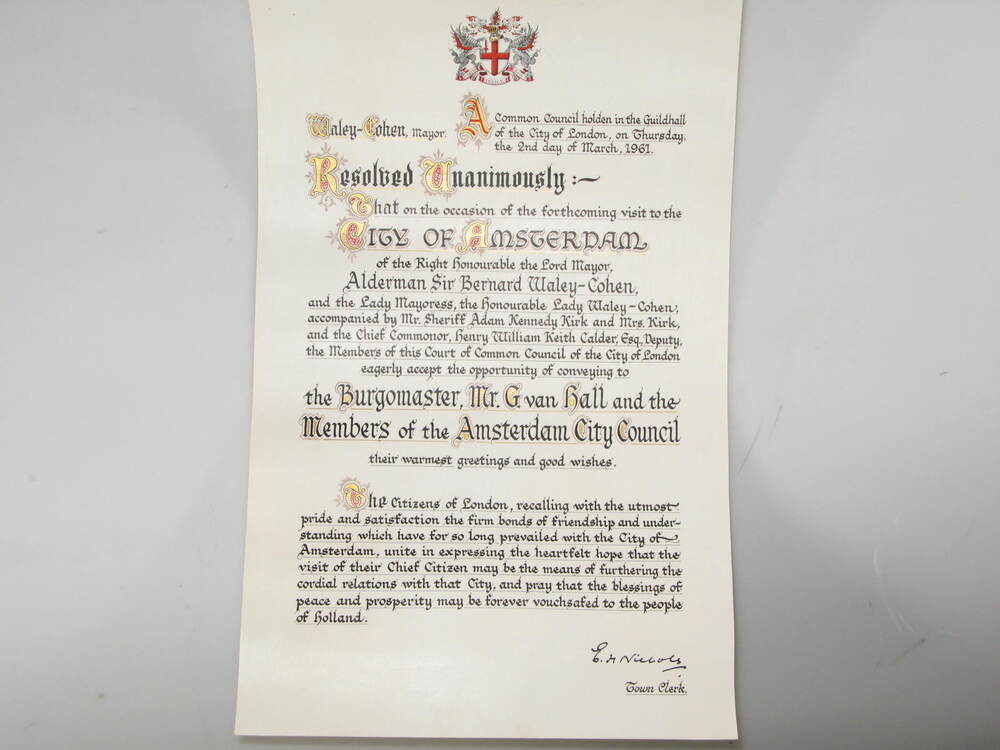 Waley-Cohen, Mayor.
A Common Council holden in the Guildhall
of the City of London, on Thursday,
the 2nd day of March, 1961.
Resolved Unanimously :~
That on the occasion of the forthcoming visit to the
CITY OF AMSTERDAM
of the Right Honourable the Lord Mayor,
Alderman Sir Bernard Waley-Cohen,
and the Lady Mayoress, the Honourable Lady Waley-Cohen,
accompanied by Mr. Sheriff Adam Kennedy Kirk and Mrs. Kirk,
and the Chief Commonor, Henry William Keith Calder, Esq., Deputy,
the Members of this Court of Common Council of the City of London
eagerly accept the opportunity of conveying to
the Burgomaster, Mr. G van Hall and the
Members of the Amsterdam City Council
their warmest greetings and good wishes.
The Citizens of London, recalling with the utmost
pride and satisfaction the firm bonds of friendship and under-
standing which have for so long prevailed with the City of
Amsterdam, unite in expressing the heartfelt hope that the
visit of their Chief Citizen may be the means of furthering the
cordial relations with that City, and pray that the blessings of
peace and prosperity may be forever vouchsafed to the people
of Holland.
E. H Nichols
Town Clerk.